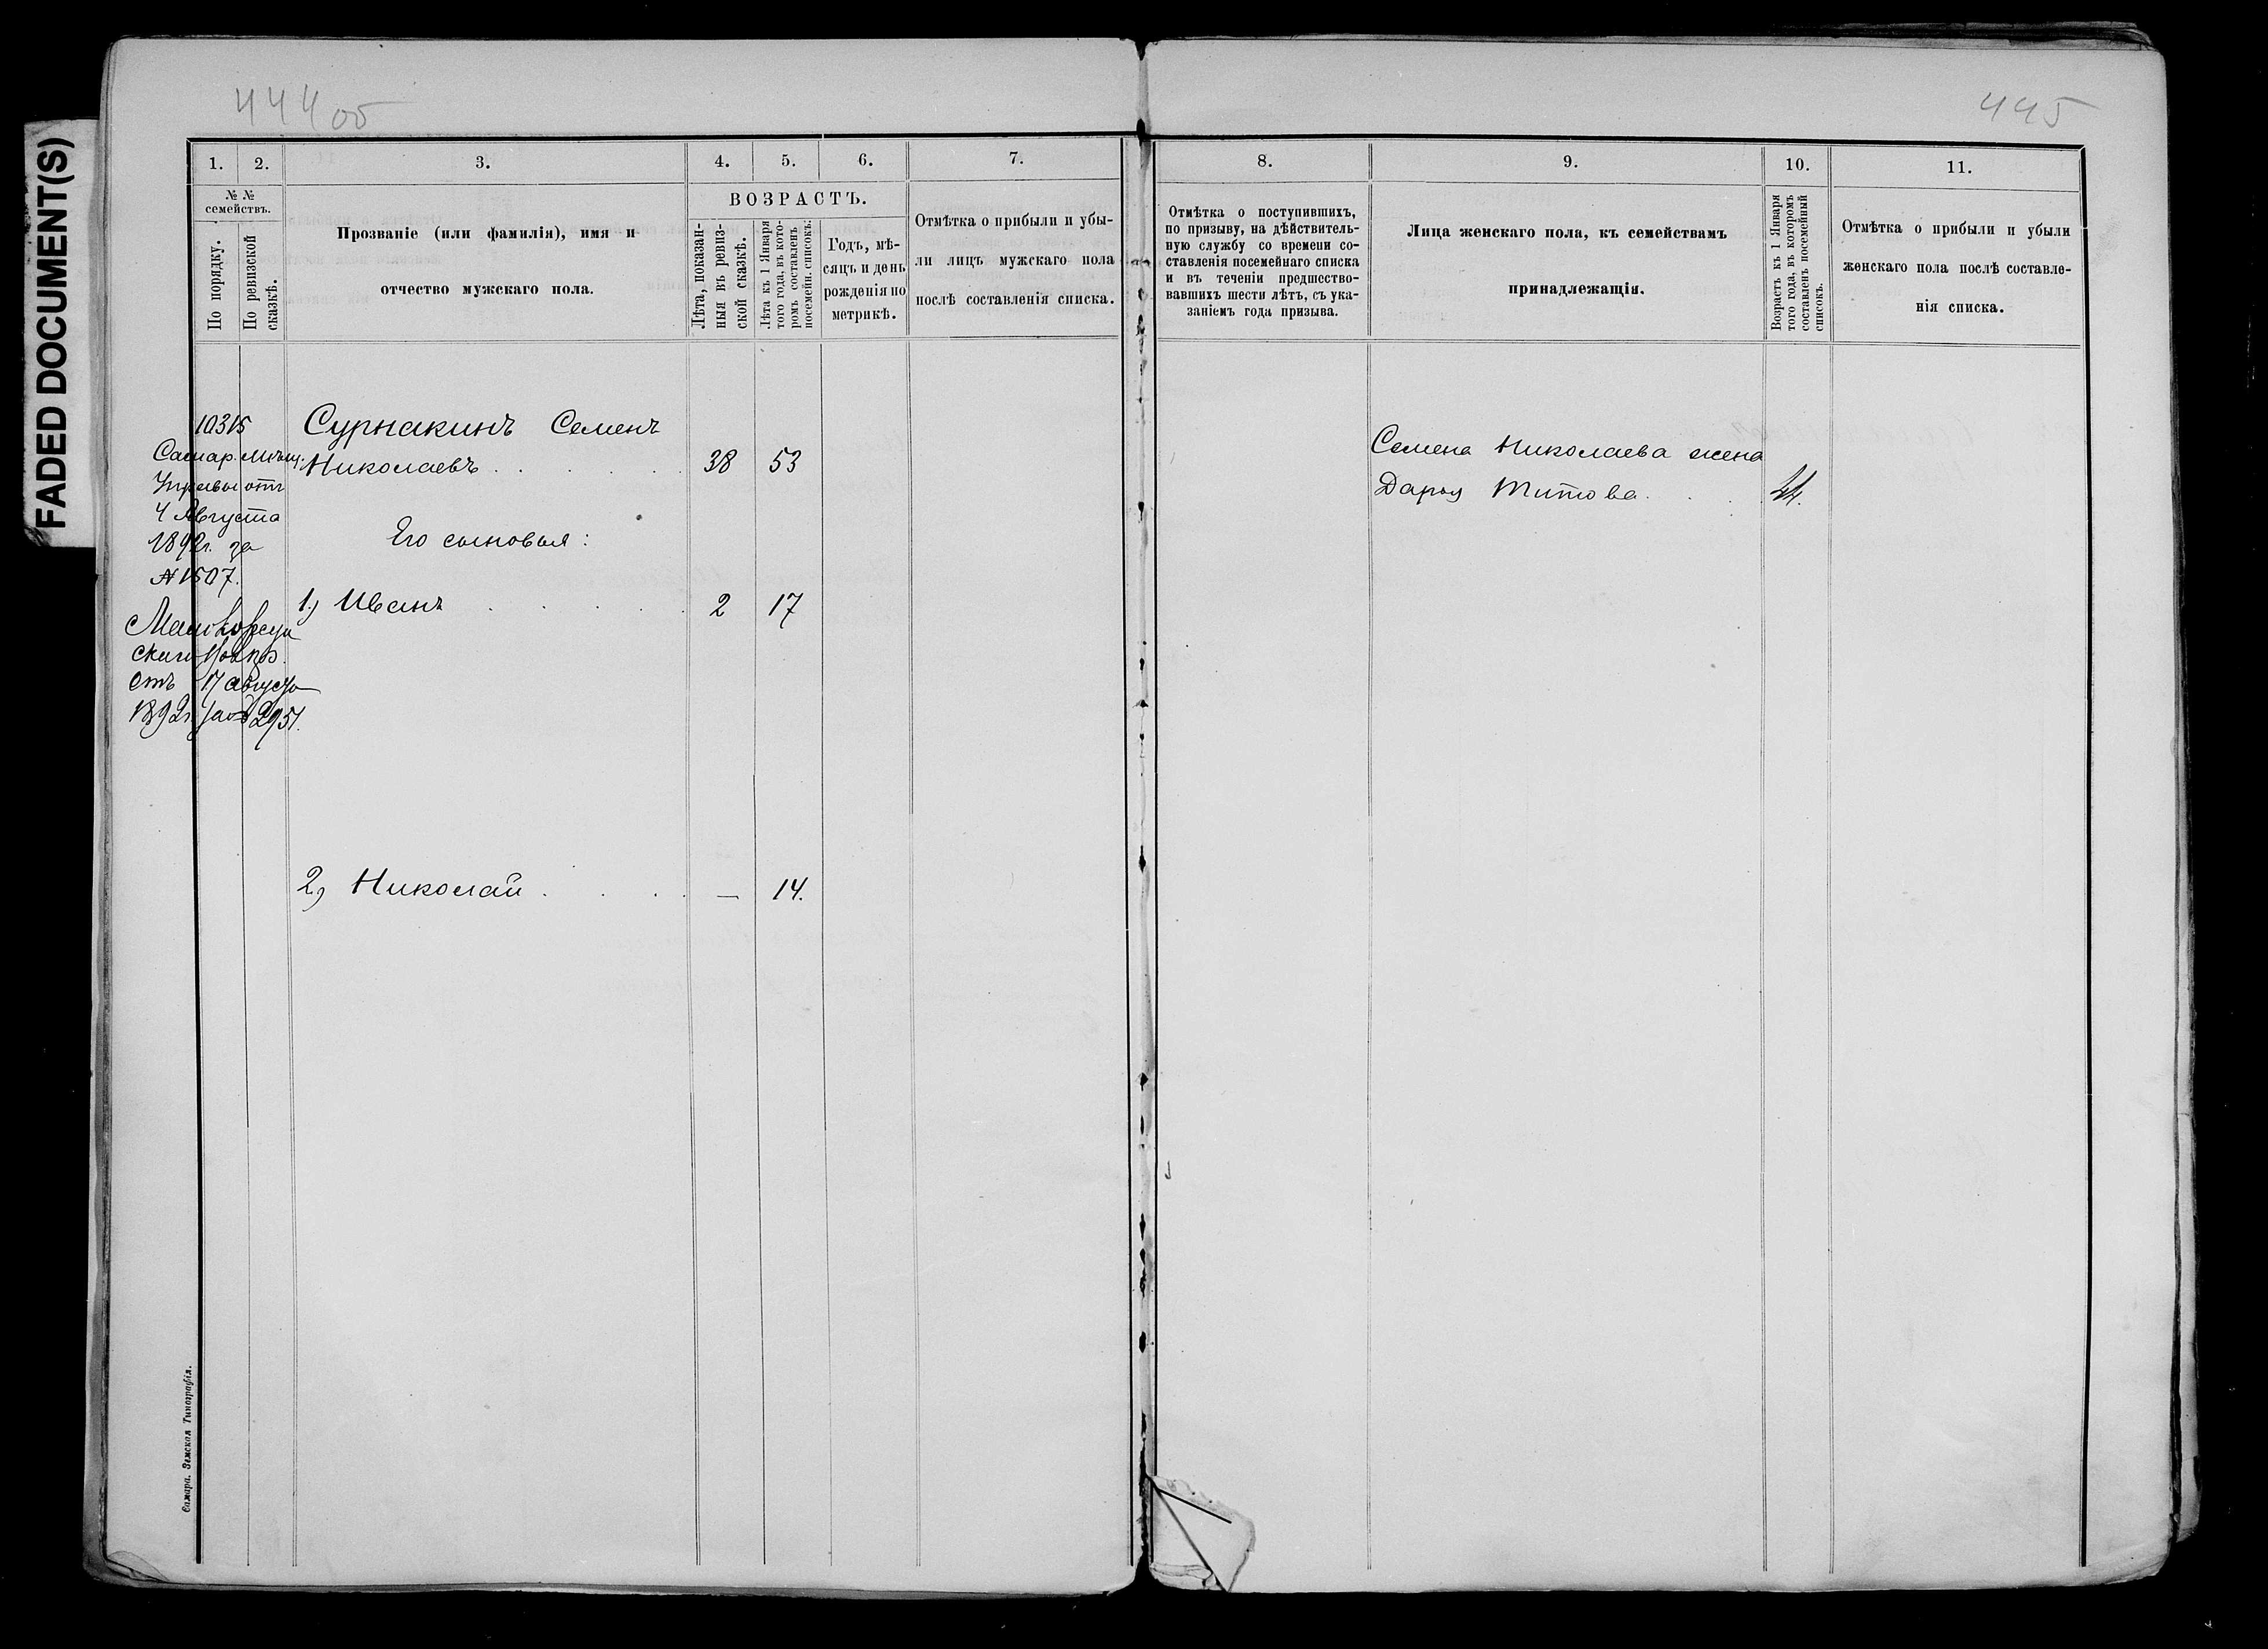 FADED DOCUMENT(S)
444 об
445
1.
2.
3.
4.
5.
6.
7.
8.
9.
10.
11.
№ №
семействъ.
По порядку.
По ревизской
сказкѣ.
Прозваніе (или фамилія), имя и
отчество мужскаго пола.
ВОЗРАСТЪ.
Лѣта, показан-
ныя въ ревиз-
ской сказкѣ.
Лѣта къ 1 Января
того года, въ кото-
ромъ составленъ
посемейн. списокъ.
Годъ, мѣ-
сяцъ и день
рожденія по
метрикѣ.
Отмѣтка о прибыли и убы-
ли лицъ мужскаго пола
послѣ составленія списка.
Отмѣтка о поступившихъ,
по призыву, на дѣйствитель-
ную службу со времени со-
ставленія посемейнаго списка
и въ теченіи предшество-
вавшихъ шести лѣтъ, съ ука-
заніемъ года призыва.
Лица женскаго пола, къ семействамъ
принадлежащія.
Возрастъ къ 1 Января
того года, въ которомъ
составленъ посемейный
списокъ.
Отмѣтка о прибыли и убыли
женскаго пола послѣ составле-
нія списка.
10315
Самар. мѣщ.
Управы отъ
4 Августа
1892г. за
№ 1507.
отъ 17 августа
1892г. за № 2951.
Сурнакинъ Семенъ
Николаевъ . . . . . 38 53
Его сыновья:
1) Иванъ . . . . . 2 17
2) Николай . . . . — 14.
Семена Николаева жена
Дарья Титова . . . 44.
Самара. Земская Типографія.